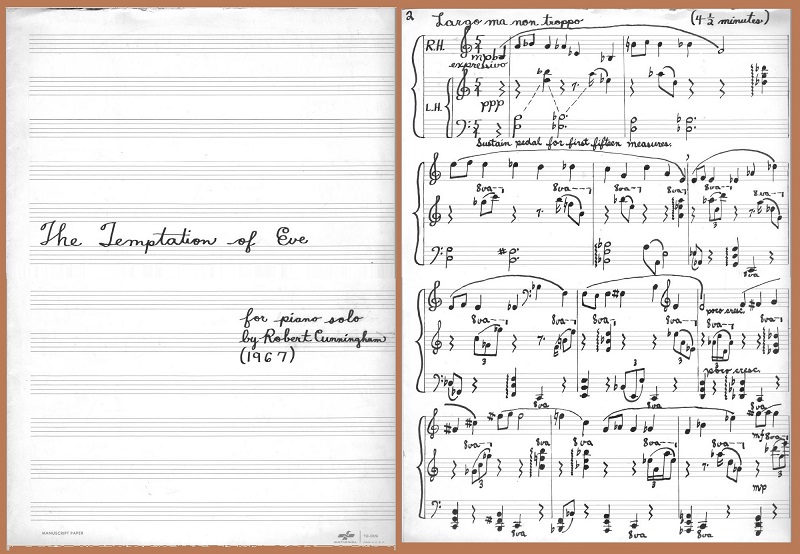 The Temptation of Eve
for piano solo
by Robert Cunningham
(1967)
MANUSCRIPT PAPER
2
Largo ma non troppo
(4-½ minutes.)
R.H.
mp
espressivo
L.H.
ppp
Sustain pedal for first fifteen measures.
8va 8va 8va 8va 8va
8va
poco cresc.
8va 8va 8va 8va 8va 8va
3 3
poco cresc.
8va 8va 8va
8va
mf 8va
8va 8va 8va 8va
3 3
mp
8va 8va